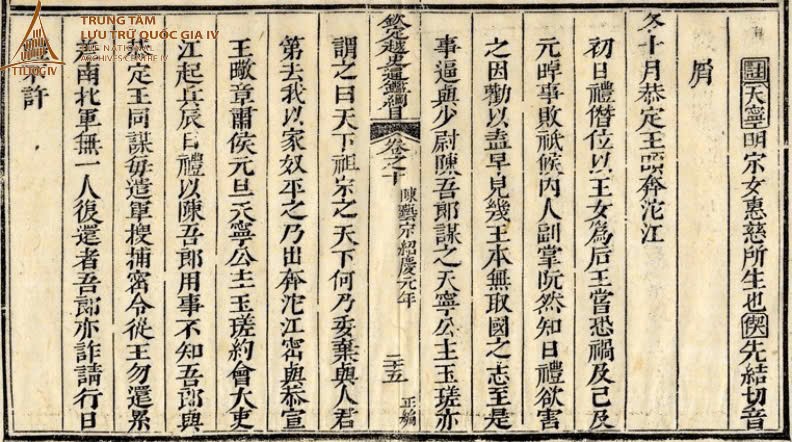 TRUNG TÂM
LƯU TRỮ QUỐC GIA IV
THE NATIONAL
ARCHIVES CENTRE IV
TTLTQG IV
註天寧明宗女惠慈所生也僕先結切音
屑
冬十月恭定王頤奔沱江
初日禮僭位以王女為后王嘗恐禍及己及
元晫事敗祗候內人副掌阮然知日禮欲害
之因勸以盍早見幾王本無取國之志至是
事逼與少尉陳吾郎謀之天寧公主玉瑳亦
欽定越史通鑑綱目
卷之十
陳藝宗紹慶元年
二十五
正編
謂之曰天下祖宗之天下何乃委棄與人君
第去我以家奴平之乃出奔沱江密與恭宣
王曔章肅侯元旦天寧公主玉瑳約會大吏
江起兵辰日禮以陳吾郎用事不知吾郎與
恭定王同謀每遣軍搜捕密令從王勿還累
差南北軍無一人復還者吾郎亦詐請行日
禮不許